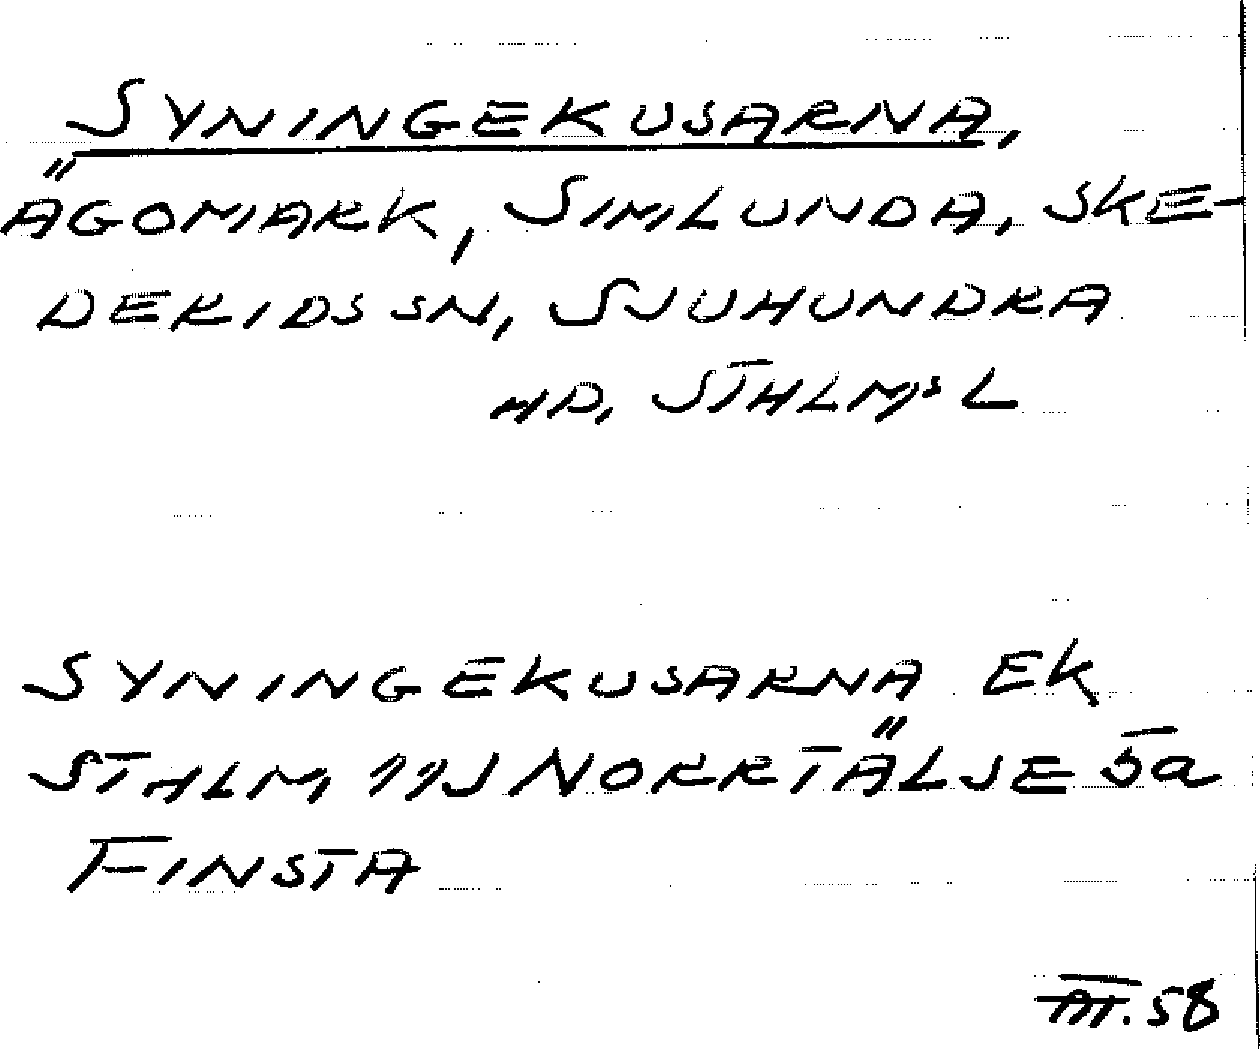 SYNINGEKUSARNA,
ÄGOMARK, SIMLUNDA, SKE-
DERIDS SN, SJUHUNDRA
HD, STHLMS L
SYNINGEKUSARNA EK
STHLM 11J NORRTÄLJE 5a
FINSTA
58